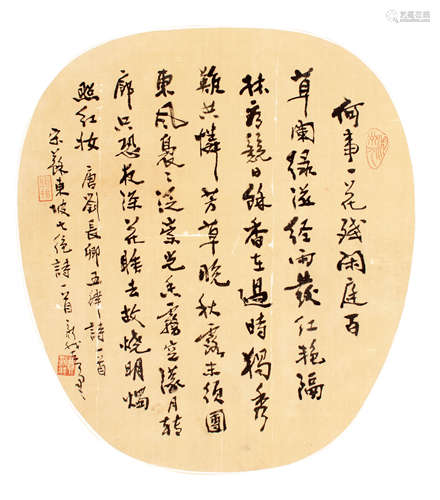 何事一花殘閑庭百
草闌緑滋經雨發紅艷隔
林看競日餘香在過時獨秀
難共憐芳草晚秋露未須團
東風裊〻泛崇光香霧空濛月轉
廊只恐夜深花睡去故燒明燭
照紅妝 唐劉長卿五律詩一首
宋蘇東坡七絶詩一首